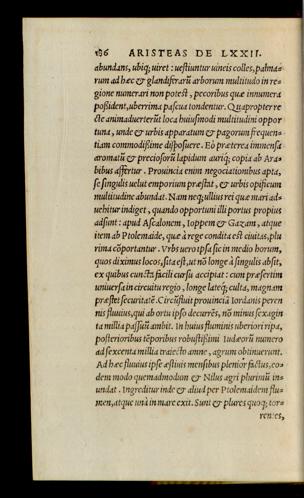 186 ARISTEAS DE LXXII.
abundans, ubiq; uiret: uestiuntur uineis colles, palma-
rum ad hæc & glandiferarũ arborum multitudo in re-
gione numerari non potest, pecoribus quæ innumera
possident, uberrima pascua tondentur. Quapropter re-
cte animaduerterũt loca huiusmodi multitudini oppor
tuna, unde & urbis apparatum & pagorum frequen-
tiam commodissime disposuere. Eò præterea immensa
aromatũ & preciosorũ lapidum auriq; copia ab Ara-
bibus affertur. Prouincia enim negociationibus apta,
se singulis uelut emporium præstat, & urbis opificum
multitudine abundat. Nam neq; ullius rei quæ mari ad-
uehitur indiget, quando opportuni illi portus propius
adsunt: apud Ascalonem, Ioppem & Gazam, atque
item ab Ptolemaide, quæ à rege condita est ciuitas, plu
rima cõportantur. Vrbs uero ipsa sic in medio horum,
quos diximus locos, sita est, ut nõ longe à singulis absit,
ex quibus cuncta facili cursu accipiat: cum præsertim
uniuersa in circuitu regio, longe lateq; culta, magnam
præstet securitatẽ. Circũfluit prouinciã Iordanis peren
nis fluuius, qui ab ortu ipso decurrẽs, nõ minus sexagin
ta millia passuũ ambit. In huius fluminis uberiori ripa,
posterioribus tẽporibus robustissimi Iudæorũ numero
ad sexcenta millia traiecto amne, agrum obtinuerunt.
Ad hæc fluuius ipse æstiuis mensibus plenior factus, eo-
dem modo quemadmodum & Nilus agri plurimũ in-
undat. Ingreditur inde & aliud per Ptolemaidem flu-
men, atque unà in mare exit. Sunt & plures quoq; tor-
rentes,